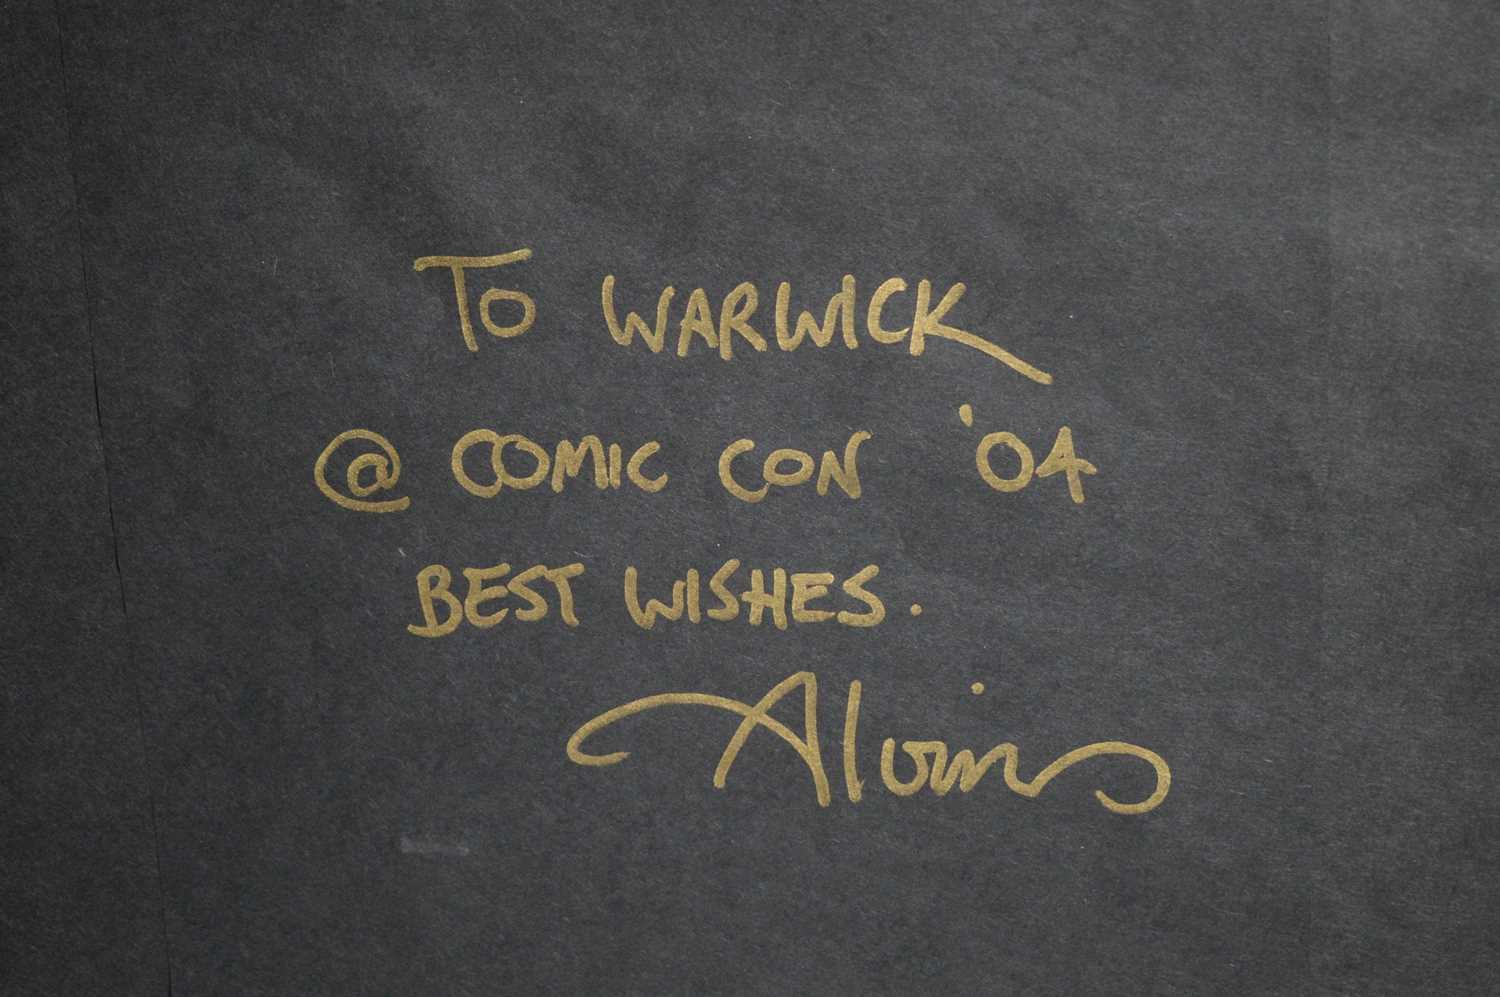 TO WARWICK
@ COMIC CON '04
BEST WISHES.
Alvin